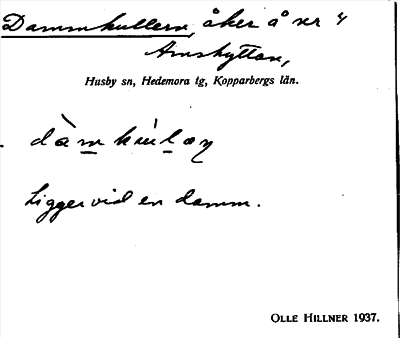 Dammkullern, åker å nr 4
Arnshyttan,
Husby sn, Hedemora tg, Kopparbergs län.
Ligger vid en damm.
OLLE HILLNER 1937.